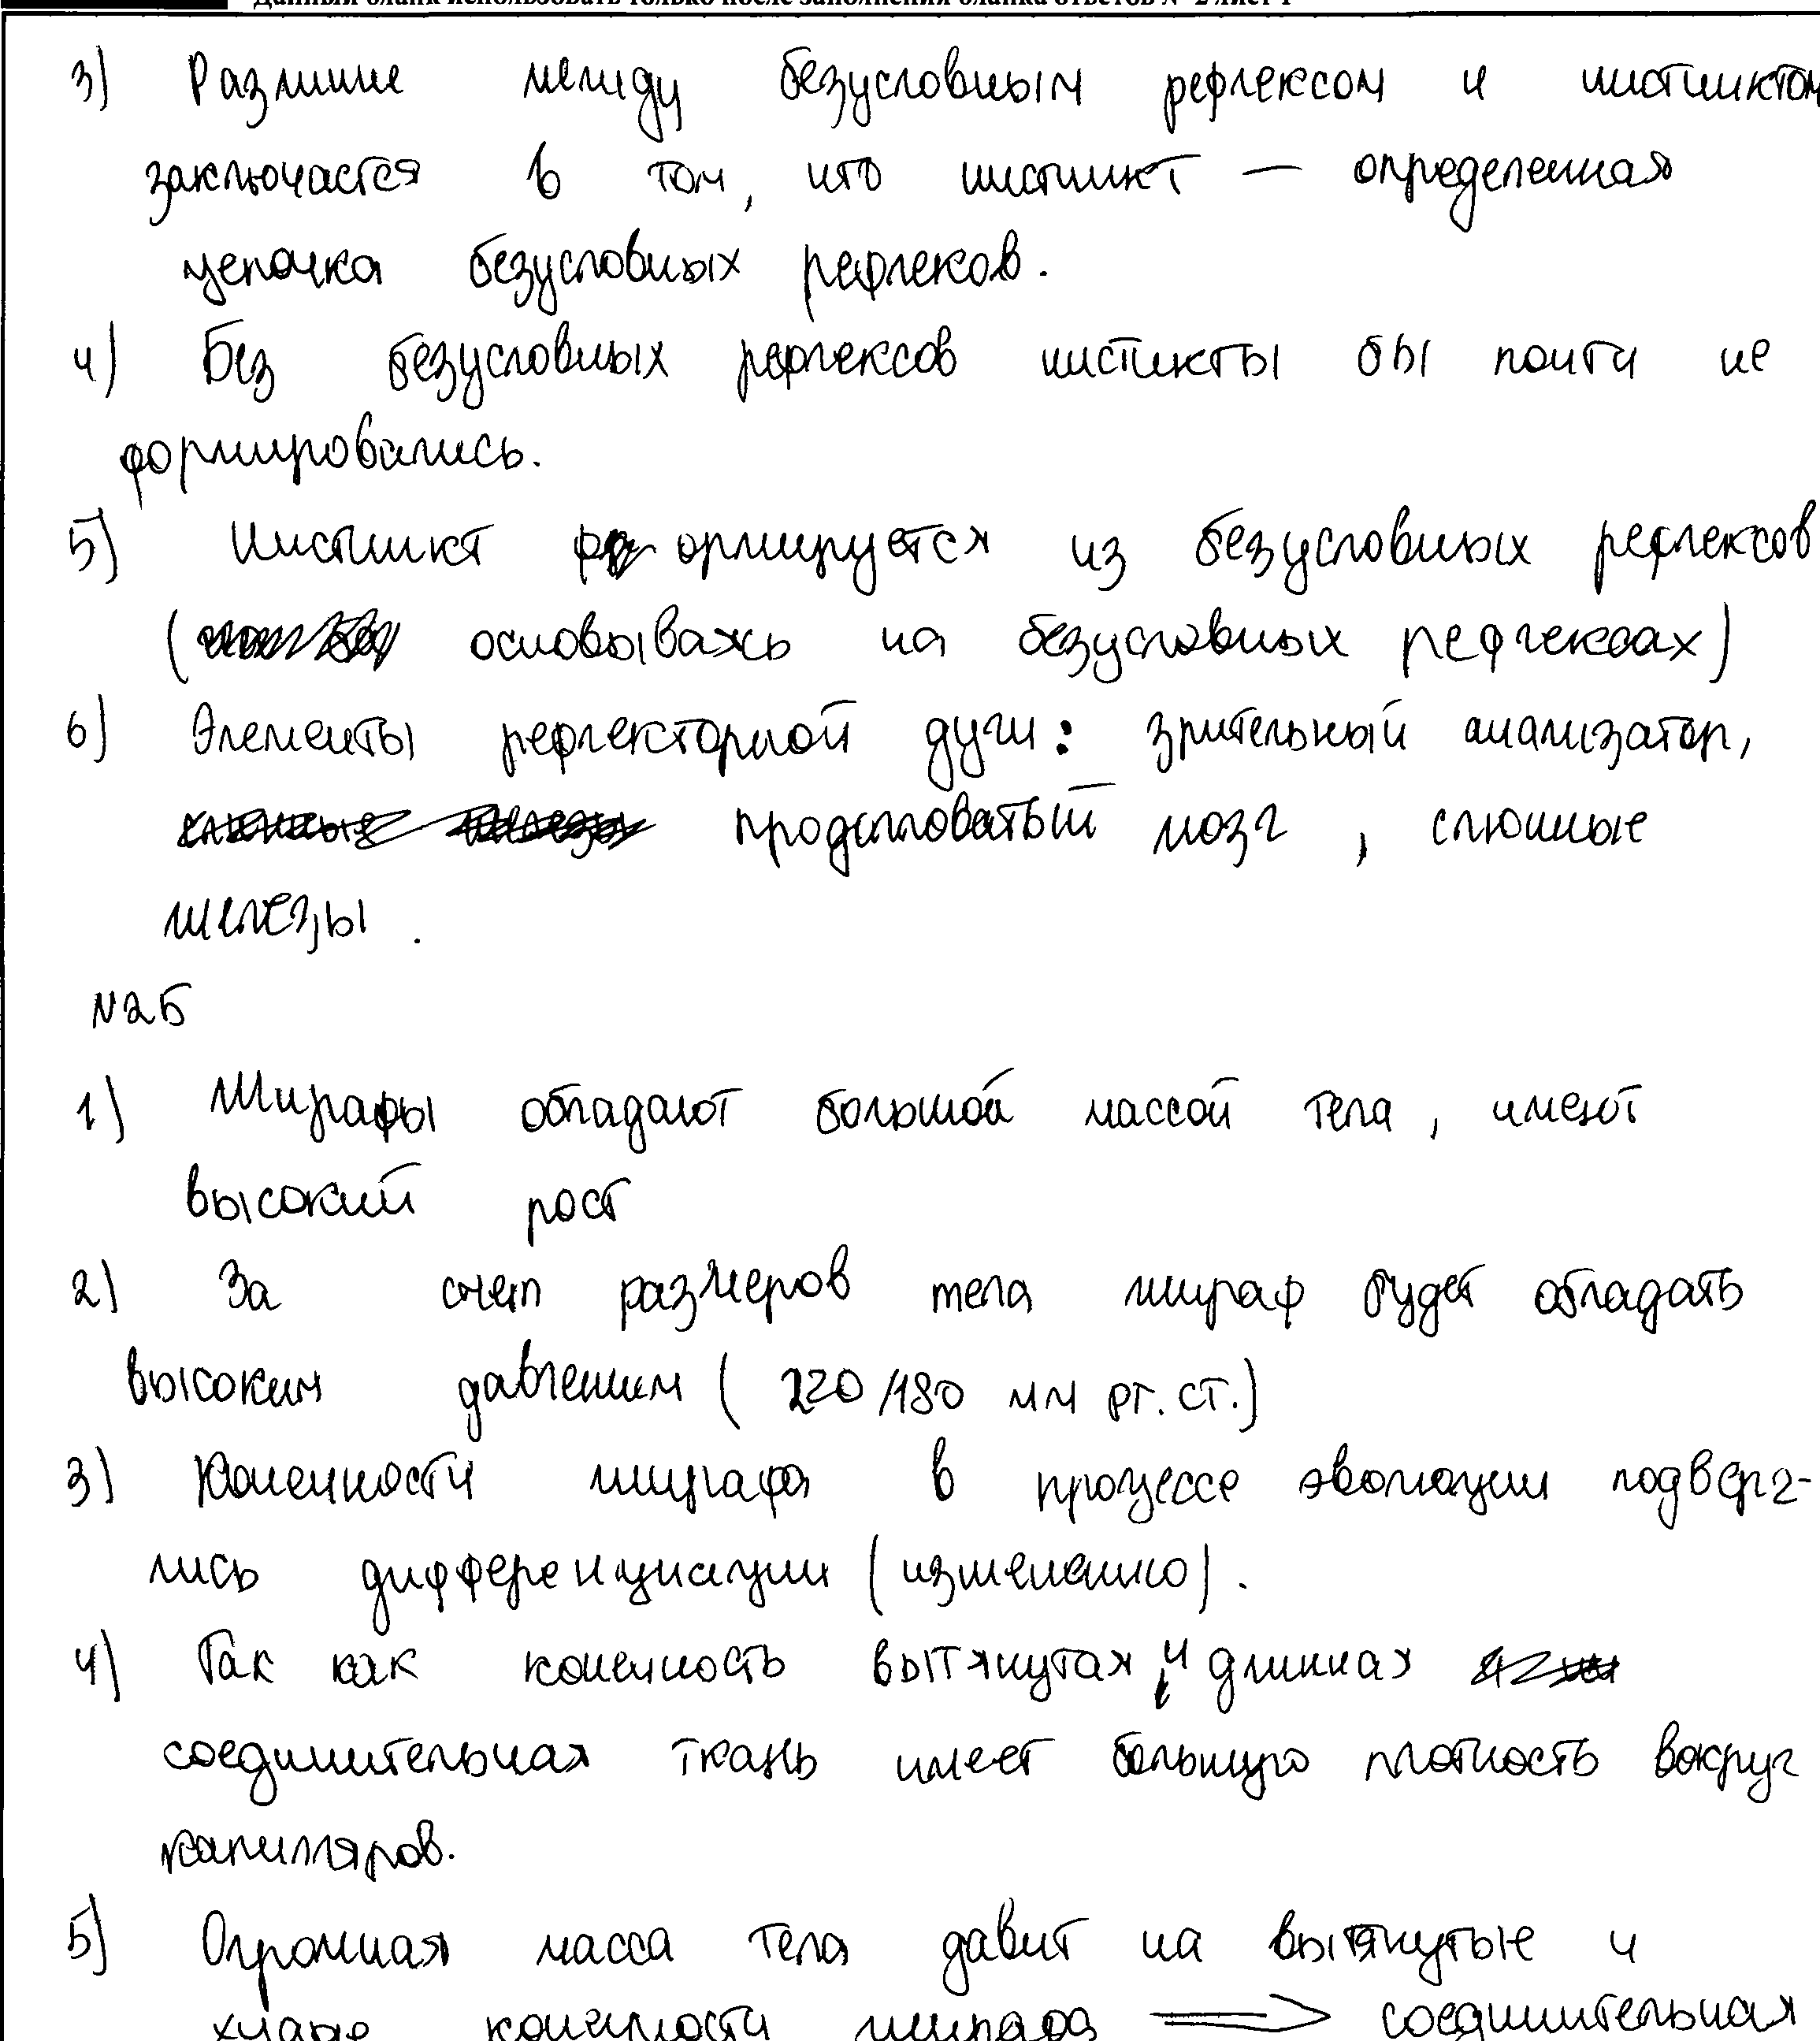 Данный бланк использовать только после заполнения бланка ответов № 2 лист 1
3) Различие между безусловным рефлексом и инстинктом
заключается в том, что инстинкт — определенная
цепочка безусловных рефлеков.
4) Без безусловных рефлексов инстикты бы почти не
формировались.
5) Инстинкт формируется из безусловных рефлексов
( основываясь на безусловных рефлексах)
6) Элементы рефлекторной дуги: зрительный анализатор,
продолговатый мозг, слюнные
железы.
№25
1) Жирафы обладают большой массой тела, имеют
высокий рост
2) За счет размеров тела жираф будет обладать
высоким давлением (220/180 мм рт. ст.)
3) Конечности жирафа в процессе эволюции подверг-
лись дифференциации (изменению).
4) Так как конечность вытянутая и длинная
соединительная ткань имеет большую плотность вокруг
капилляров.
5) Огромная масса тела давит на вытянутые и
худые конечности жирафа ⟹ соединительная